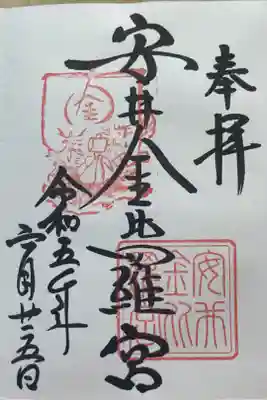 奉拝
安井金比羅宮
令和五年
六月廿五日
安井
金比
羅宮
金